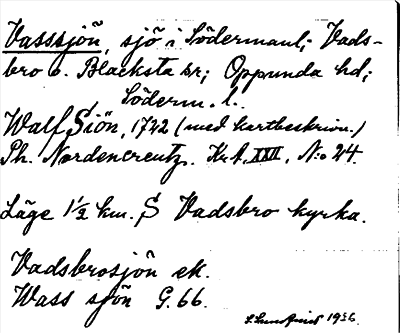 Vasssjön, sjö i Södermanl; Vads-
bro o. Blacksta sr; Oppunda hd;
Söderm. l.
Walf Siön, 1722 (med kartbeskrivn.)
Ph. Nordencreutz. Kr. A. XXII. N:o 24.
Läge 1 1/2 km. S Vadsbro kyrka.
Vadsbrosjön ek.
Wass sjön G. 66.
1936.